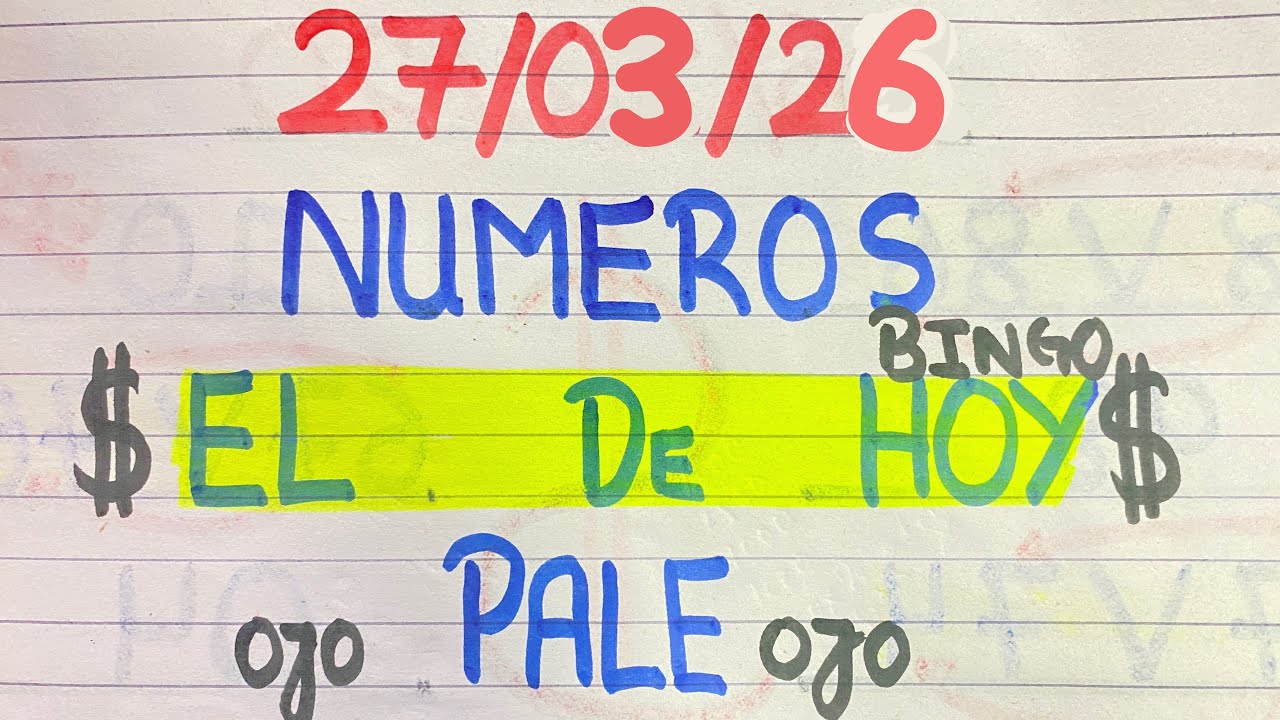 27/03/26
NUMEROS
BINGO
$ EL DE HOY $
PALE
OJO OJO